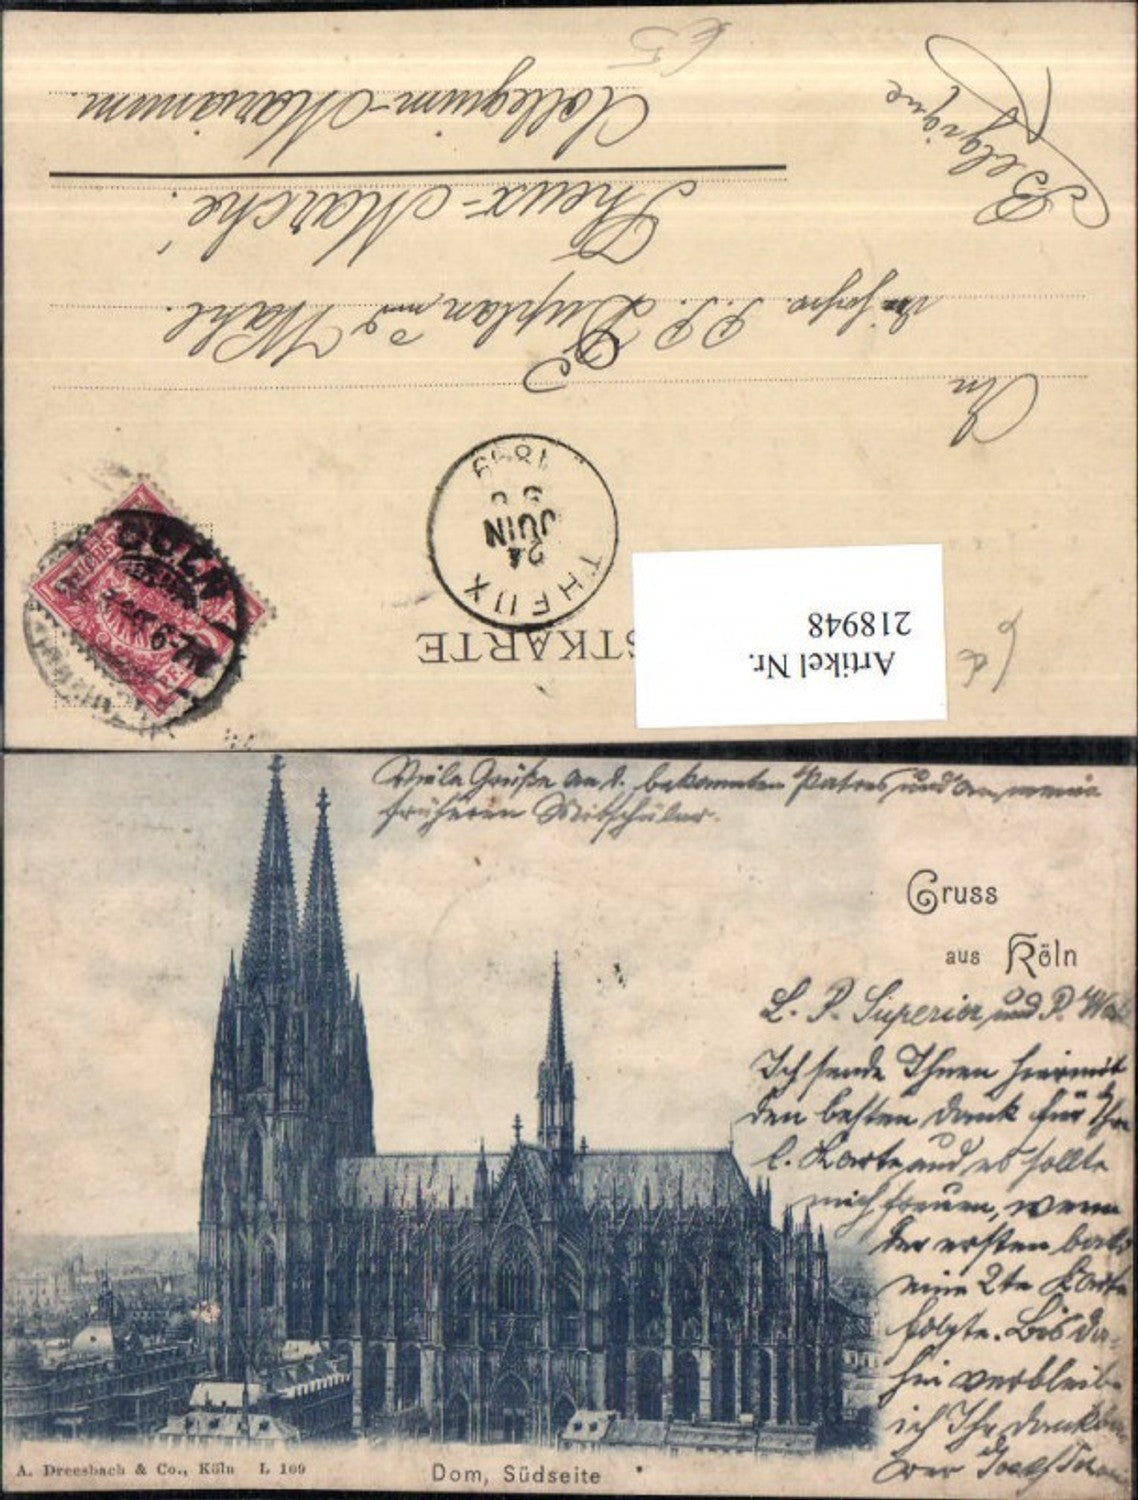 POSTKARTE
Artikel Nr.
218948
THEUX
24
JUIN
1899
COELN
6-7N
PF.
An
P.P. Duplan und Wahl.
Theux-Marché.
Collegium-Marianum.
Belgique
Viele Grüße an d. bekannten Patres und an meine
früheren Mitschüler.
Gruss
aus Köln
L. P. Superior und P. Wahl
Ich sende Ihnen hiermit
den besten Dank für Ihre
l. Karte und es sollte
mich freuen, wenn
der ersten bald
eine 2te Karte
folgte. Bis da-
hin verbleibe
ich Ihr dankba-
rer Josef
A. Dreesbach & Co., Köln L 109
Dom, Südseite